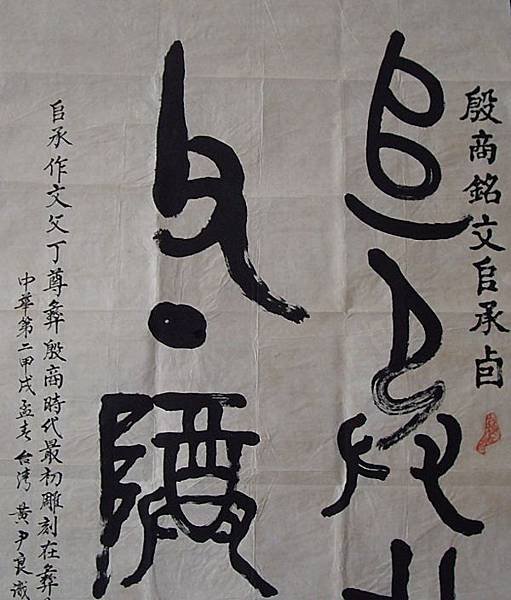 殷商銘文𠂤承卣
𠂤承
父丁尊
𠂤承作文父丁尊彝殷商時代最初雕刻在彝
中華第二甲戌孟春台灣黃尹良識